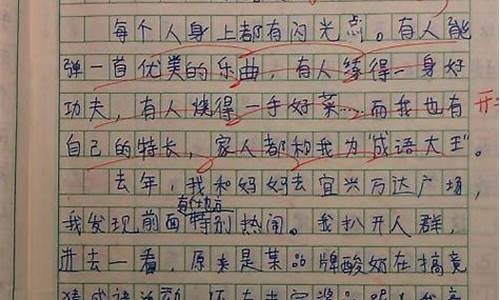 每个人身上都有闪光点。有人能
弹一首优美的乐曲，有人练得一身好
功夫，有人烧得一手好菜……而我也有
开
自己的特长，家人都和我为“成语大王”。
去年，我和妈妈去宜兴万达广场，
我发现前面有个地方特别热闹。我扒开人群，
进去一看，原来是某品牌酸奶在搞竞
猜成语活动，